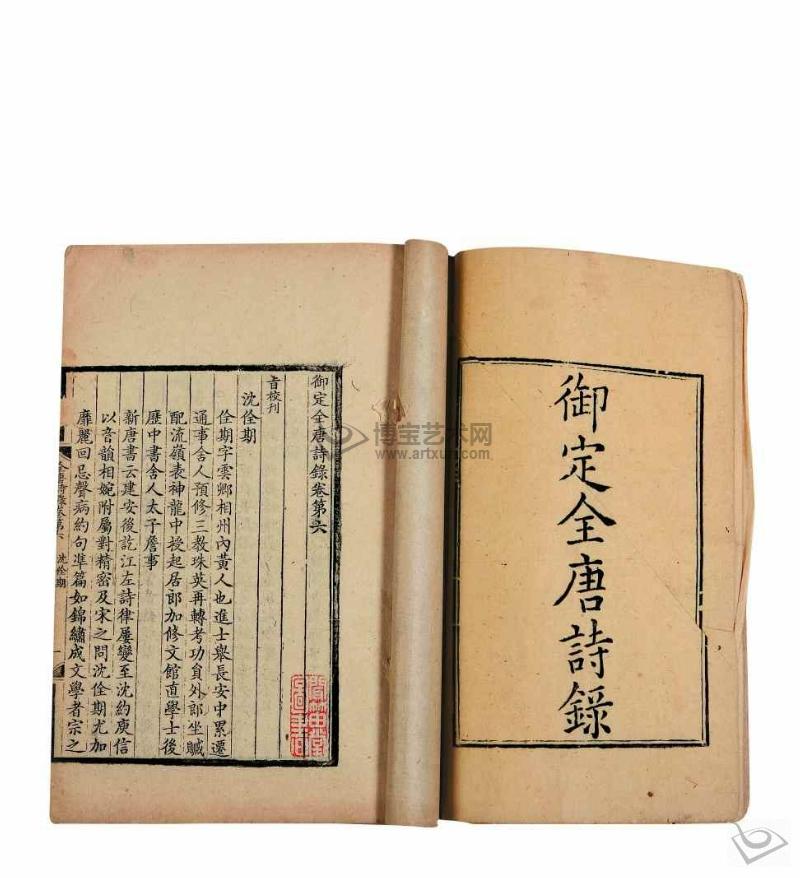 御定全唐詩錄
御定全唐詩錄卷第六
旨校刊
沈佺期
佺期字雲卿相州內黃人也進士舉長安中累遷
通事舍人預修三教珠英再轉考功貟外郎坐贓
配流嶺表神龍中授起居郎加修文館直學士後
歷中書舍人太子詹事
新唐書云建安後訖江左詩律屢變至沈約庾信
以音韻相婉附屬對精密及宋之問沈佺期尤加
靡麗回忌聲病約句准篇如錦繡成文學者宗之
全唐詩錄卷第六 沈佺期 一
博宝艺术网
www.artxun.com